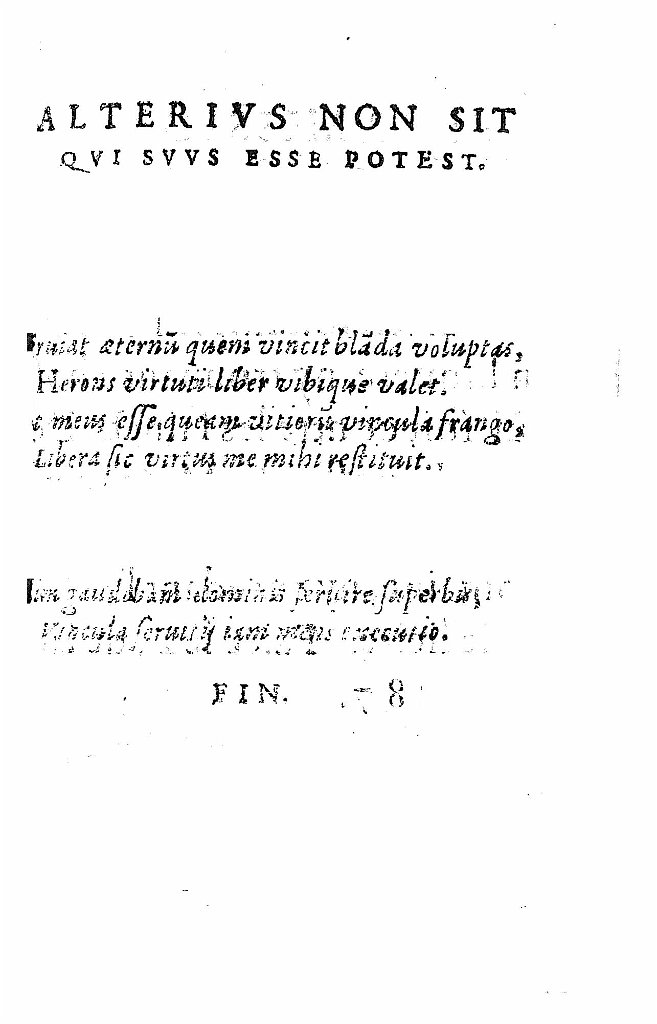 ALTERIVS NON SIT
QVI SVVS ESSE POTEST.
æternũ quem vincit blãda voluptas,
Herous virtuti liber vbique valet.
meus esse queam vitiorũ vincula frango,
Libera sic virtus me mihi restituit.
gaudebam dominis seruire superbis,
Vincula seruitij iam meus excutio.
FIN.